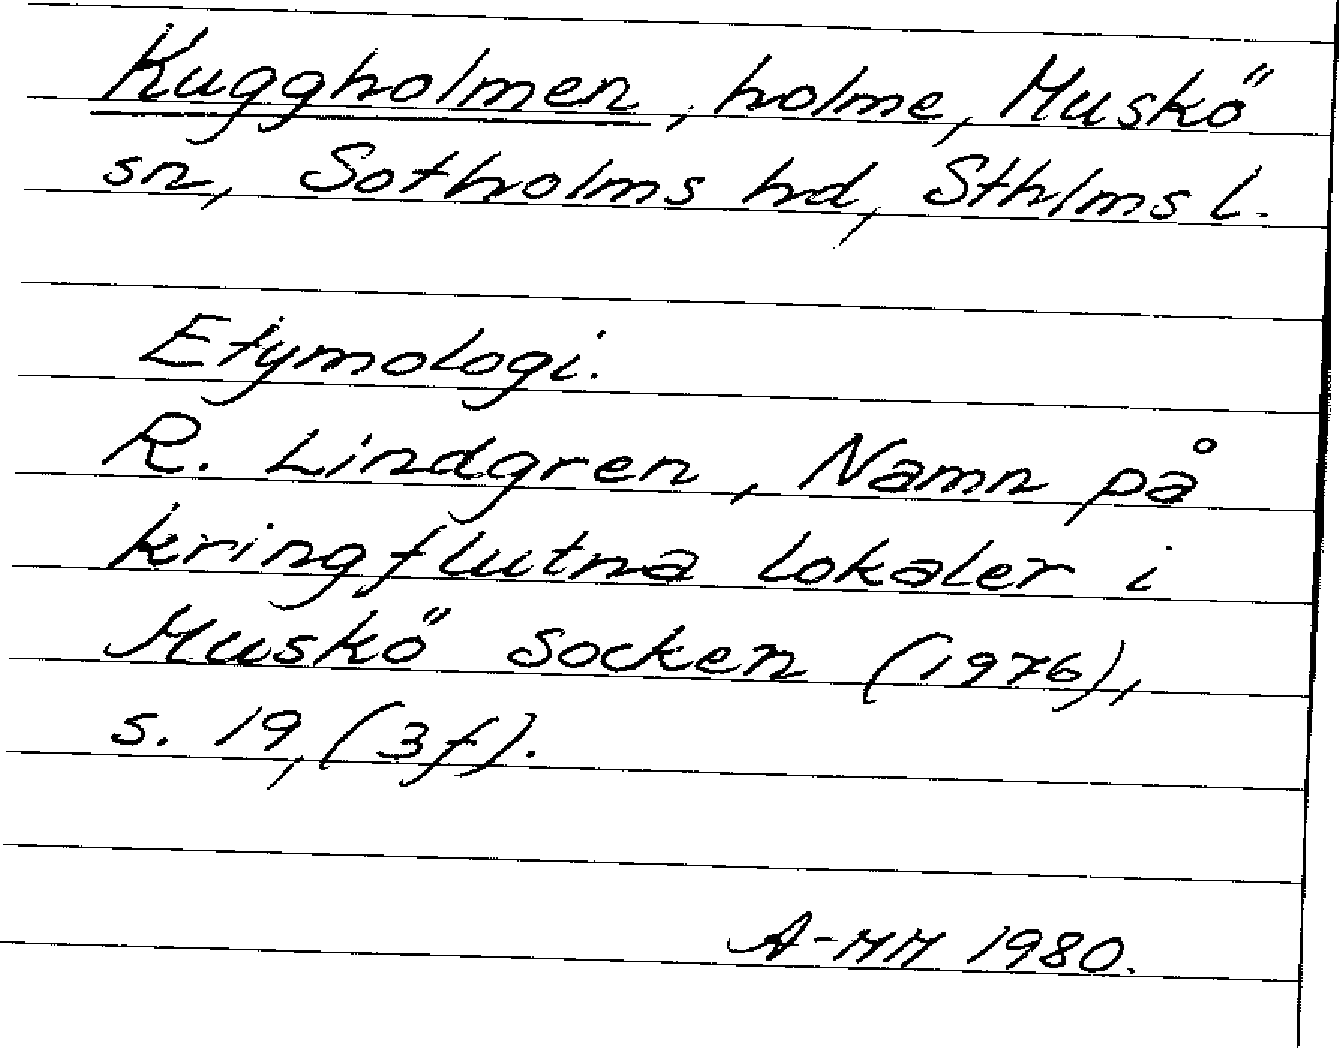 Kuggholmen, holme, Muskö
sn, Sotholms hd, Sthlms l.
Etymologi.
R. Lindgren, Namn på
kringflutna lokaler i
Muskö socken (1976),
s. 19, (3f).
A-MM 1980.